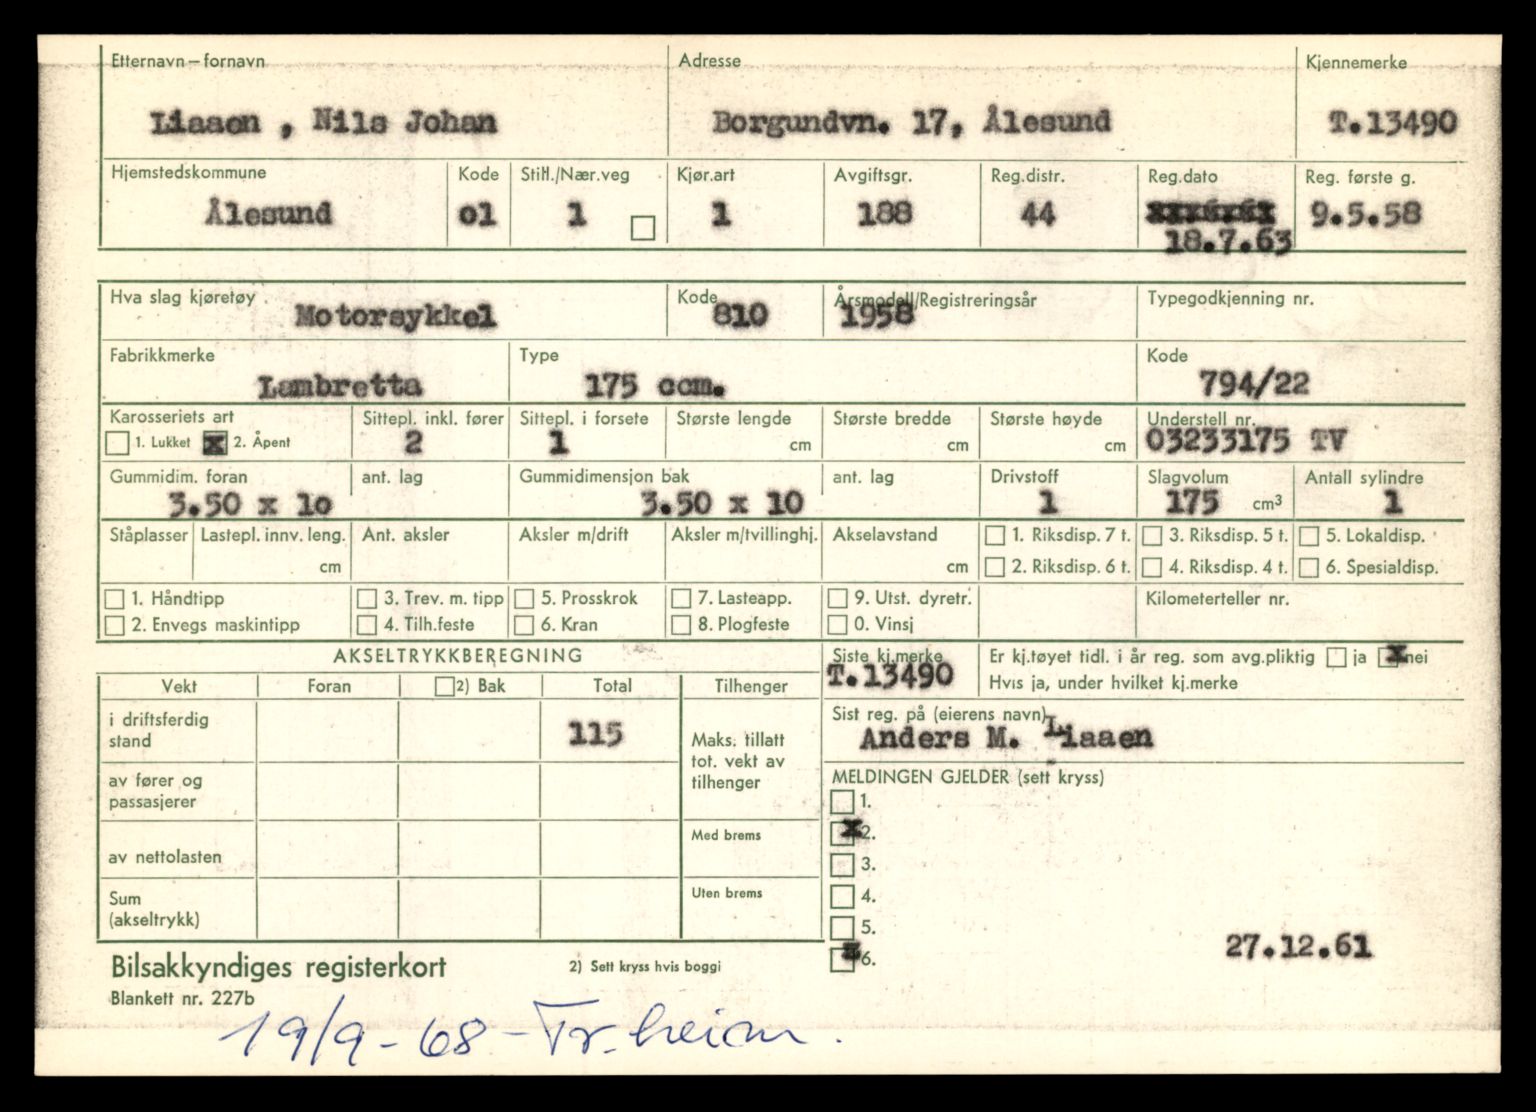 Etternavn – fornavn Adresse Kjennemerke
Liaaen , Nils Johan Borgundvn. 17, Ålesund T.13490
Hjemstedskommune Kode Still./Nær.veg Kjør.art Avgiftsgr. Reg.distr. Reg.dato Reg. første g.
Ålesund o1 1 1 188 44 9.5.58
18.7.63
Hva slag kjøretøy Kode Årsmodell/Registreringsår Typegodkjenning nr.
Motorsykkel 810 1958
Fabrikkmerke Type Kode
Lambretta 175 ccm. 794/22
Karosseriets art Sittepl. inkl. fører Sittepl. i forsete Største lengde Største bredde Største høyde Understell nr.
1. Lukket x 2. Åpent 2 1 cm cm cm 03233175 TV
Gummidim. foran ant. lag Gummidimensjon bak ant. lag Drivstoff Slagvolum Antall sylindre
3.50 x 1o 3.50 x 10 1 175 cm3 1
Ståplasser Lastepl. innv. leng. Ant. aksler Aksler m/drift Aksler m/tvillinghj. Akselavstand 1. Riksdisp. 7 t. 3. Riksdisp. 5 t. 5. Lokaldisp.
cm cm 2. Riksdisp. 6 t. 4. Riksdisp. 4 t. 6. Spesialdisp.
1. Håndtipp 3. Trev. m. tipp 5. Prosskrok 7. Lasteapp. 9. Utst. dyretr. Kilometerteller nr.
2. Envegs maskintipp 4. Tilh.feste 6. Kran 8. Plogfeste 0. Vinsj
AKSELTRYKKBEREGNING Siste kj.merke Er kj.tøyet tidl. i år reg. som avg.pliktig ja x nei
T.13490 Hvis ja, under hvilket kj.merke
Vekt Foran 2) Bak Total Tilhenger
i driftsferdig stand 115 Maks. tillatt tot. vekt av tilhenger
Sist reg. på (eierens navn)
Anders M. Liaaen
av fører og passasjerer
MELDINGEN GJELDER (sett kryss)
1.
x 2.
av nettolasten Med brems
3.
Sum (akseltrykk) Uten brems
4.
5.
x 6.
27.12.61
Bilsakkyndiges registerkort 2) Sett kryss hvis boggi
Blankett nr. 227b
19/9 - 68 - Tr.heim.